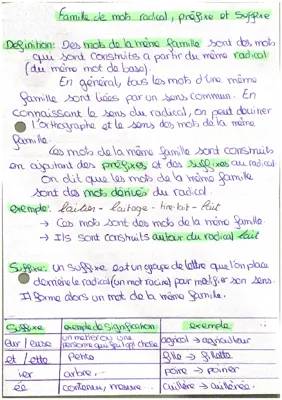 Famille de mots radical, préfixe et suffixe
Définition: Des mots de la même famille sont des mots
qui sont construits à partir du même radical
(du même mot de base).
En général, tous les mots d'une même
famille sont liées par un sens commun. En
connaissant le sens du radical, on peut deviner
l'orthographe et le sens des mots de la même
famille.
Les mots de la même famille sont construits
en ajoutant des préfixes et des suffixes au radical
On dit que les mots de la même famille
sont des mots dérivés du radical.
exemple: laitier - laitage - tire-lait - lait
→ Ces mots sont des mots de la même famille
→ Ils sont construits autour du radical lait
Suffixe: un suffixe est un groupe de lettre que l'on place
derrière le radical (un mot racine) pour modifier son sens.
Il forme alors un mot de la même famille.
Suffixe exemple de signification exemple
eur / euse un métier ou une agricol → agriculteur
personne qui fait qqch chose
et / ette petite fille → fillette
ier arbre... poire → poirier
ée contenu, mesure... cuillère → cuillérée